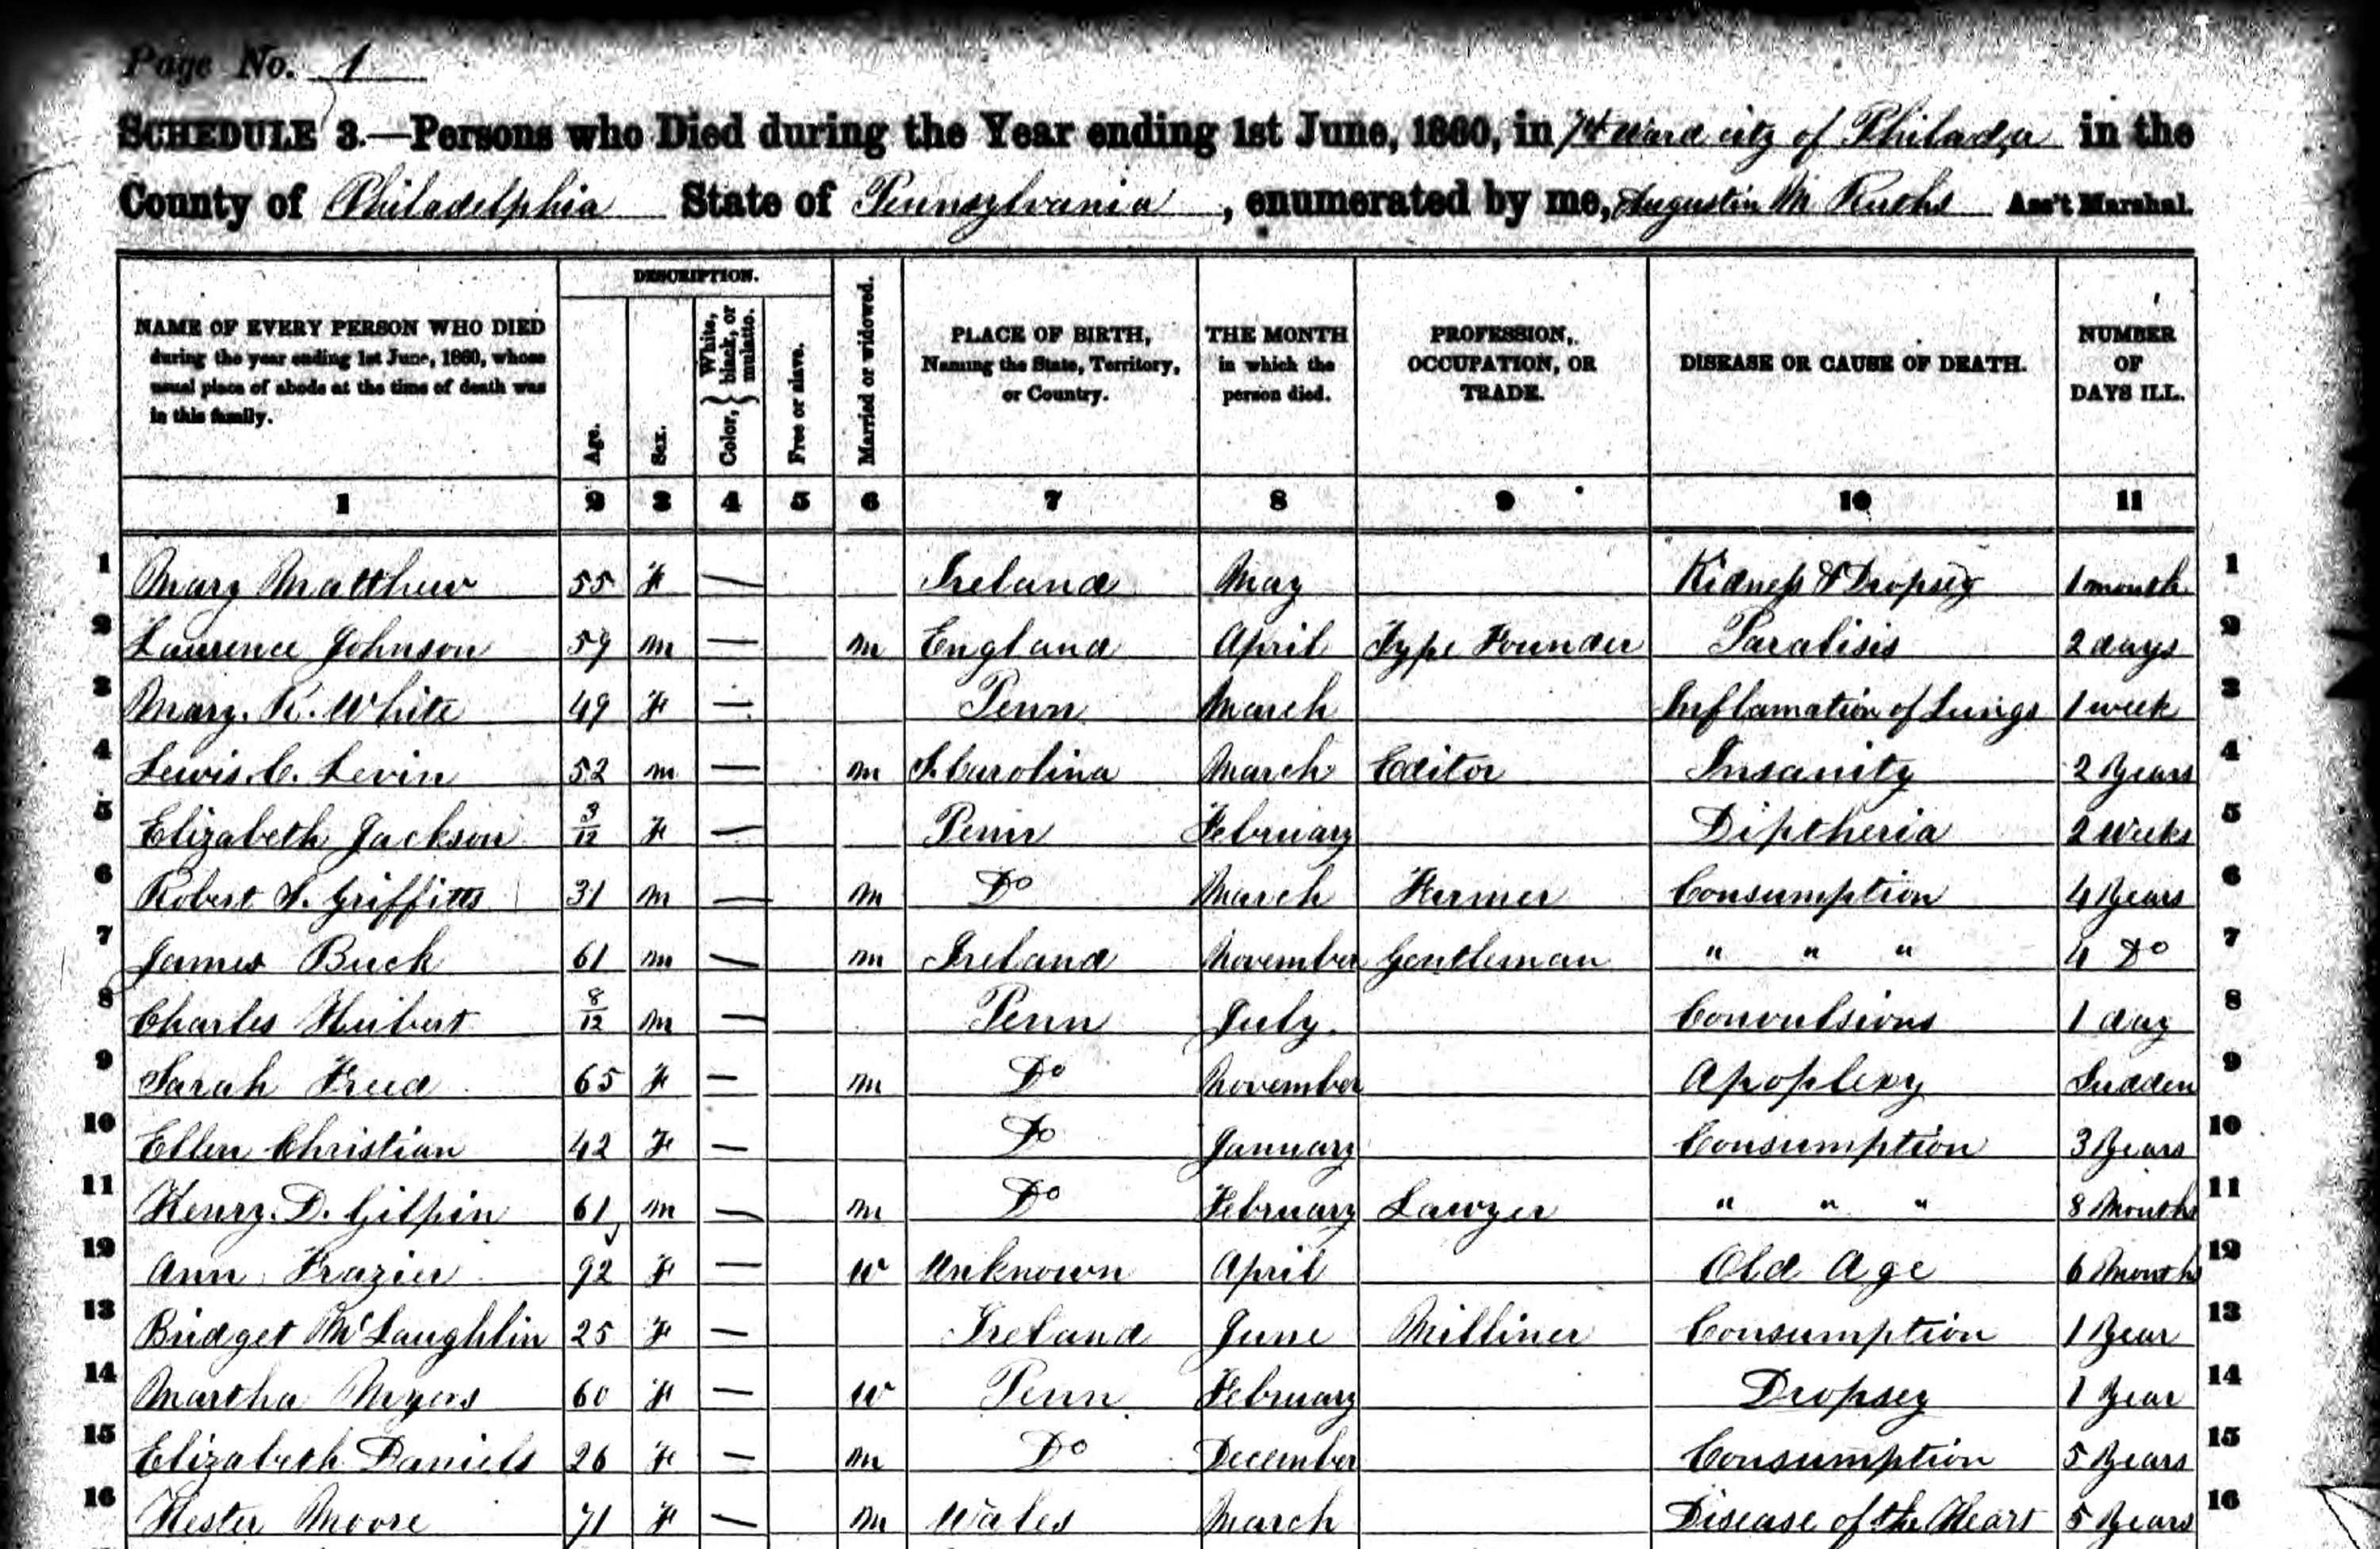 Page No. 1
SCHEDULE 3.—Persons who Died during the Year ending 1st June, 1860, in 7th Ward city of Philada in the
County of Philadelphia State of Pennsylvania, enumerated by me, Augustin M Ass't Marshal.
NAME OF EVERY PERSON WHO DIED during the year ending 1st June, 1860, whose usual place of abode at the time of death was in this family.
DESCRIPTION.
Age.
Sex.
Color, } White, black, or mulatto.
Free or slave.
Married or widowed.
PLACE OF BIRTH, Naming the State, Territory, or Country.
THE MONTH in which the person died.
PROFESSION, OCCUPATION, OR TRADE.
DISEASE OR CAUSE OF DEATH.
NUMBER OF DAYS ILL.
1 2 3 4 5 6 7 8 9 10 11
1 Mary Matthew 55 F — Ireland May Kidneys & Dropsey 1 month 1
2 Laurence Johnson 59 m — m England April Type Founder Paralisis 2 days 2
3 Mary. R. White 49 F — Penn March Inflamation of Lungs 1 week 3
4 Lewis. C. Levin 52 m — m S. Carolina March Editor Insanity 2 Years 4
5 Elizabeth Jackson 3/12 F — Penn February Diptheria 2 Weeks 5
6 Robert S. Griffitts 31 m — m Do March Farmer Consumption 4 Years 6
7 James Buck 61 m — m Ireland November Gentleman " " " 4 Do 7
8 Charles Huibert 8/12 m — Penn July. Convulsions 1 day 8
9 Sarah Freed 65 F — m Do November Apoplexy Sudden 9
10 Ellen Christian 42 F — Do January Consumption 3 Years 10
11 Henry. D. Gilpin 61 m — m Do February Lawyer " " " 8 Months 11
12 Ann Frazier 92 F — w Unknown April Old Age 6 Months 12
13 Bridget McLaughlin 25 F — Ireland June Milliner Consumption 1 Year 13
14 Martha Myers 60 F — w Penn February Dropsey 1 Year 14
15 Elizabeth Daniels 26 F — m Do December Consumption 5 Years 15
16 Hester Moore 71 F — m Wales March Disease of the Heart 5 Years 16